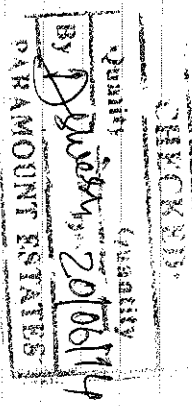 CHECKED.
Quality Quantity
By 20/06/14
PARAMOUNT ESTATES